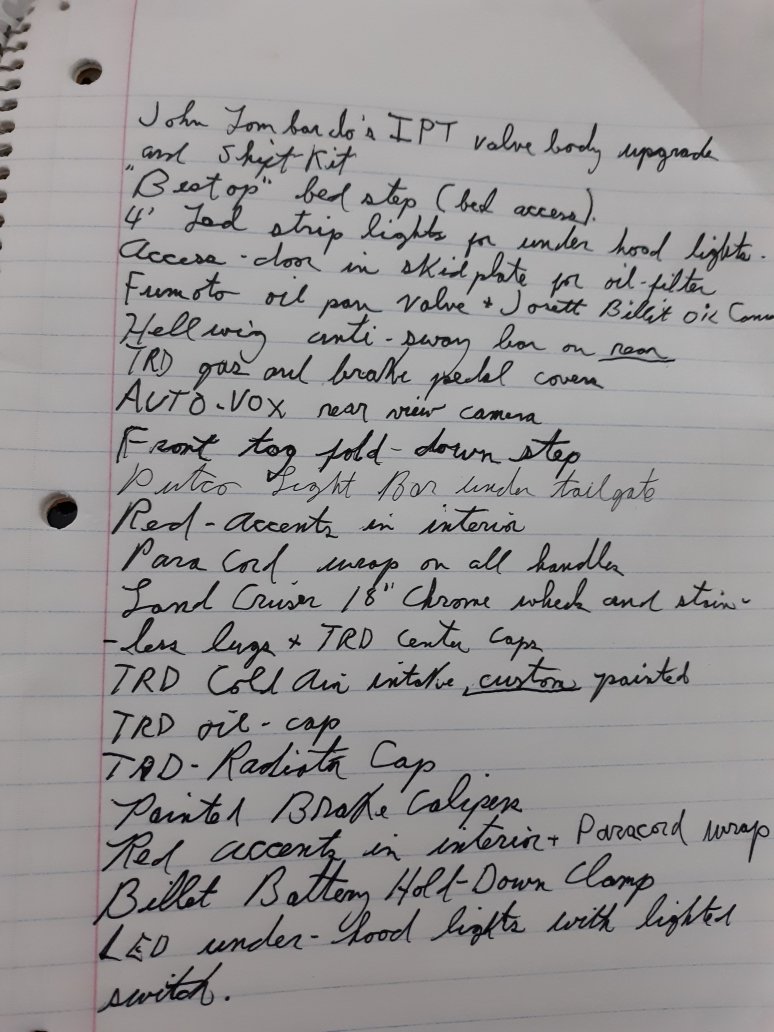 John Lombardo's IPT valve body upgrade
and Shift-Kit
"Bestop" bed step (bed access).
4' Led strip lights for under hood lights.
Access-door in skidplate for oil-filter
Fumoto oil pan valve + Jorett Billit Oil
Hellwig anti-sway bar on rear
TRD gas and brake pedal covers
AUTO-VOX rear view camera
Front tag fold-down step
Putco Light Bar under tailgate
Red-accents in interior
Para Cord wrap on all handles
Land Cruiser 18" Chrome wheels and stain-
-less lugs + TRD Center Caps
TRD Cold Air intake, custom painted
TRD oil-cap
TRD-Radiator Cap
Painted Brake Calipers
Red accents in interior + Paracord wrap
Billet Battery Hold-Down Clamp
LED under-hood lights with lighted
switch.